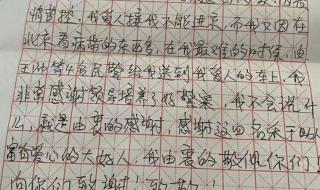 情苦撑，我爱人接我不能进来，而我又因在
北京看病带的东西多，在我最难的时候，由
王冲等4名民警给我送到我爱人的车上，我
非常感谢领导培养了好警察，我不会说什
么，就是由衷的感谢，感谢这四名乐于助人
富有爱心的大好人，我由衷的敬佩你们！
向你们致谢！致敬！